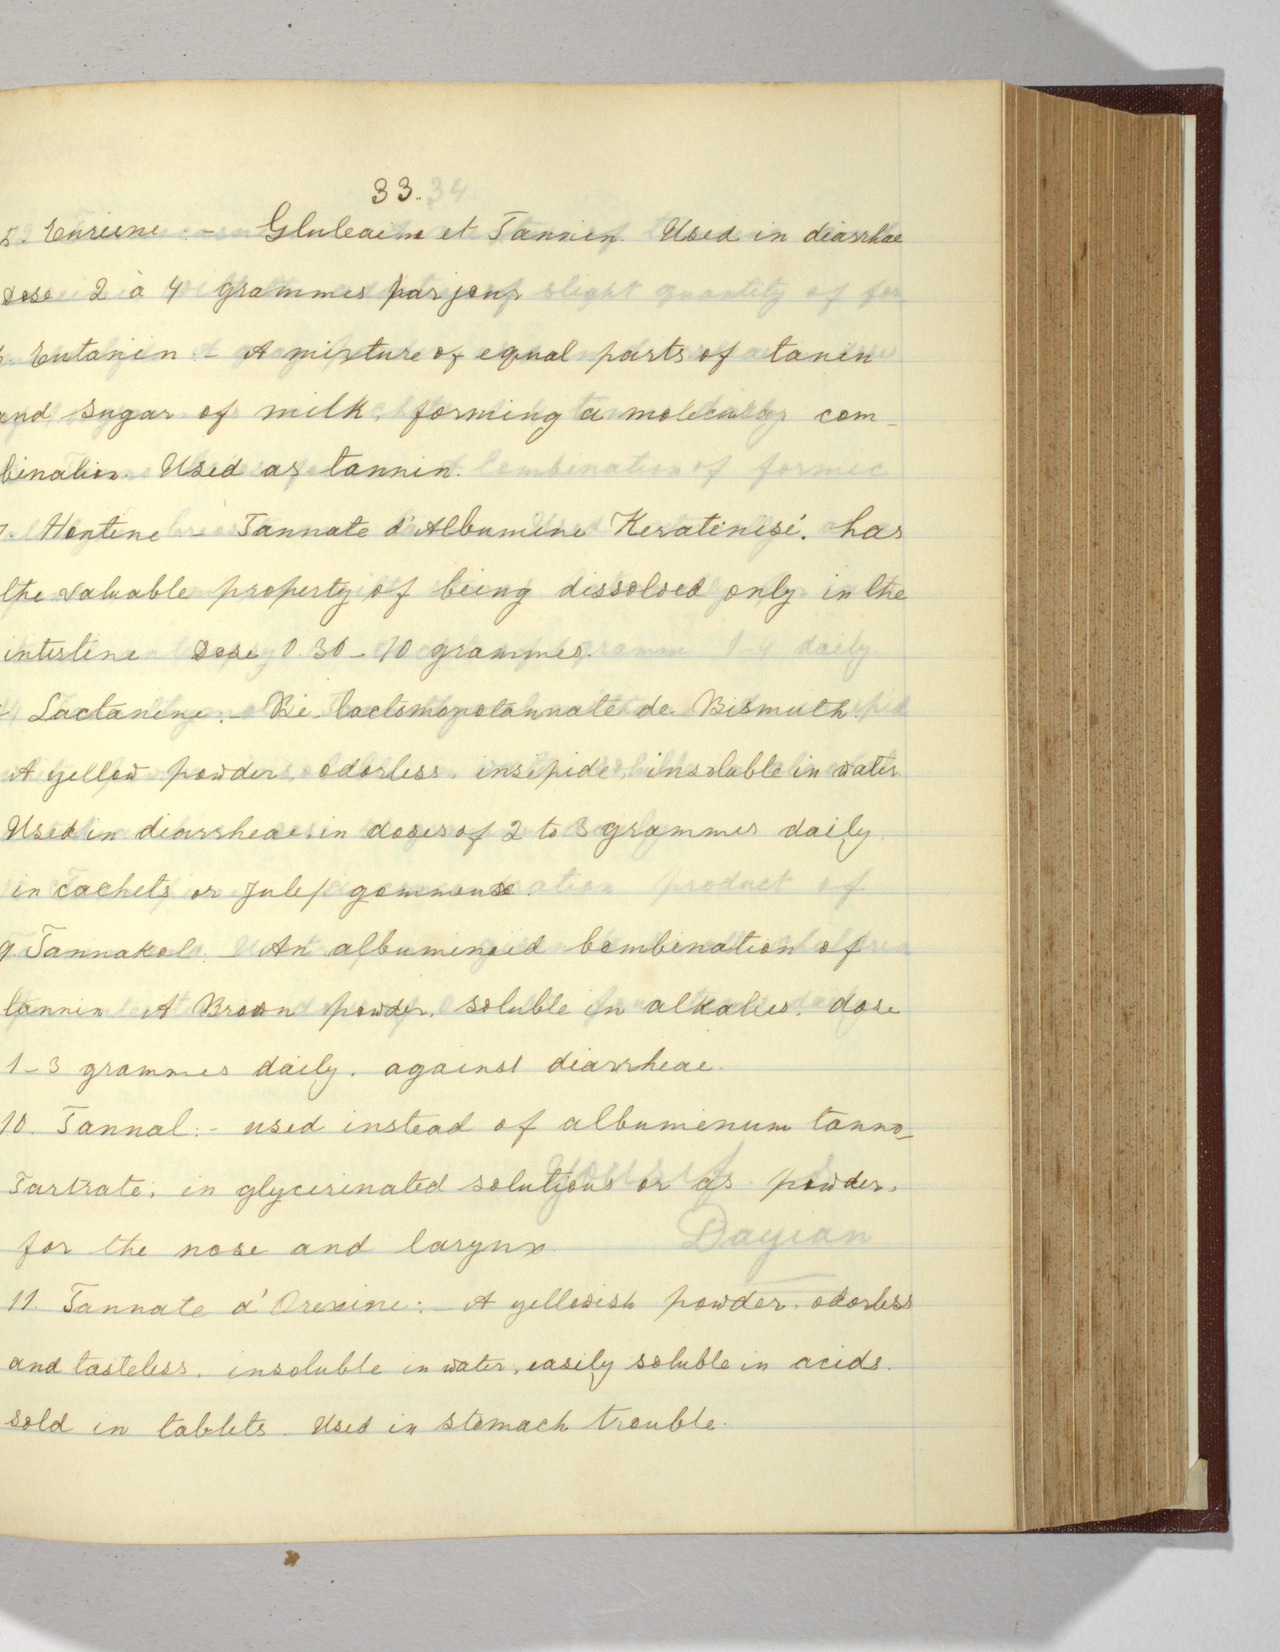 33.
5. - Gluleaine et Tannin. Used in diarrhae
Dose 2 à 4 grammes par jour
Eutanin - A mixture of equal parts of tanin
and sugar of milk, forming a molecular com-
bination. Used as tannin.
7. Hontine - Tannate d'Albumine Keratinisé. has
the valuable property of being dissolved only in the
intestine Dose 0.30 - 10 grammes.
Lactanine :- Bi-lactomonotannate de Bismuth.
A yellow powder, odorless, insipide, insoluble in water
Used in diarrheae, in doses of 2 to 3 grammes daily.
in cachets or Julep gommeuse.
9. Tannakol. - An albuminoid combination of
tannin. A Brown powder, soluble in alkalies. dose
1-3 grammes daily. against diarrheae.
10. Tannal :- used instead of albuminum tanno-
Tartrate, in glycerinated solutions or as powder,
for the nose and larynx
11. Tannate d'Orexine :- A yellowish powder. odorless
and tasteless, insoluble in water, easily soluble in acids.
Sold in tablets. Used in stomach trouble.